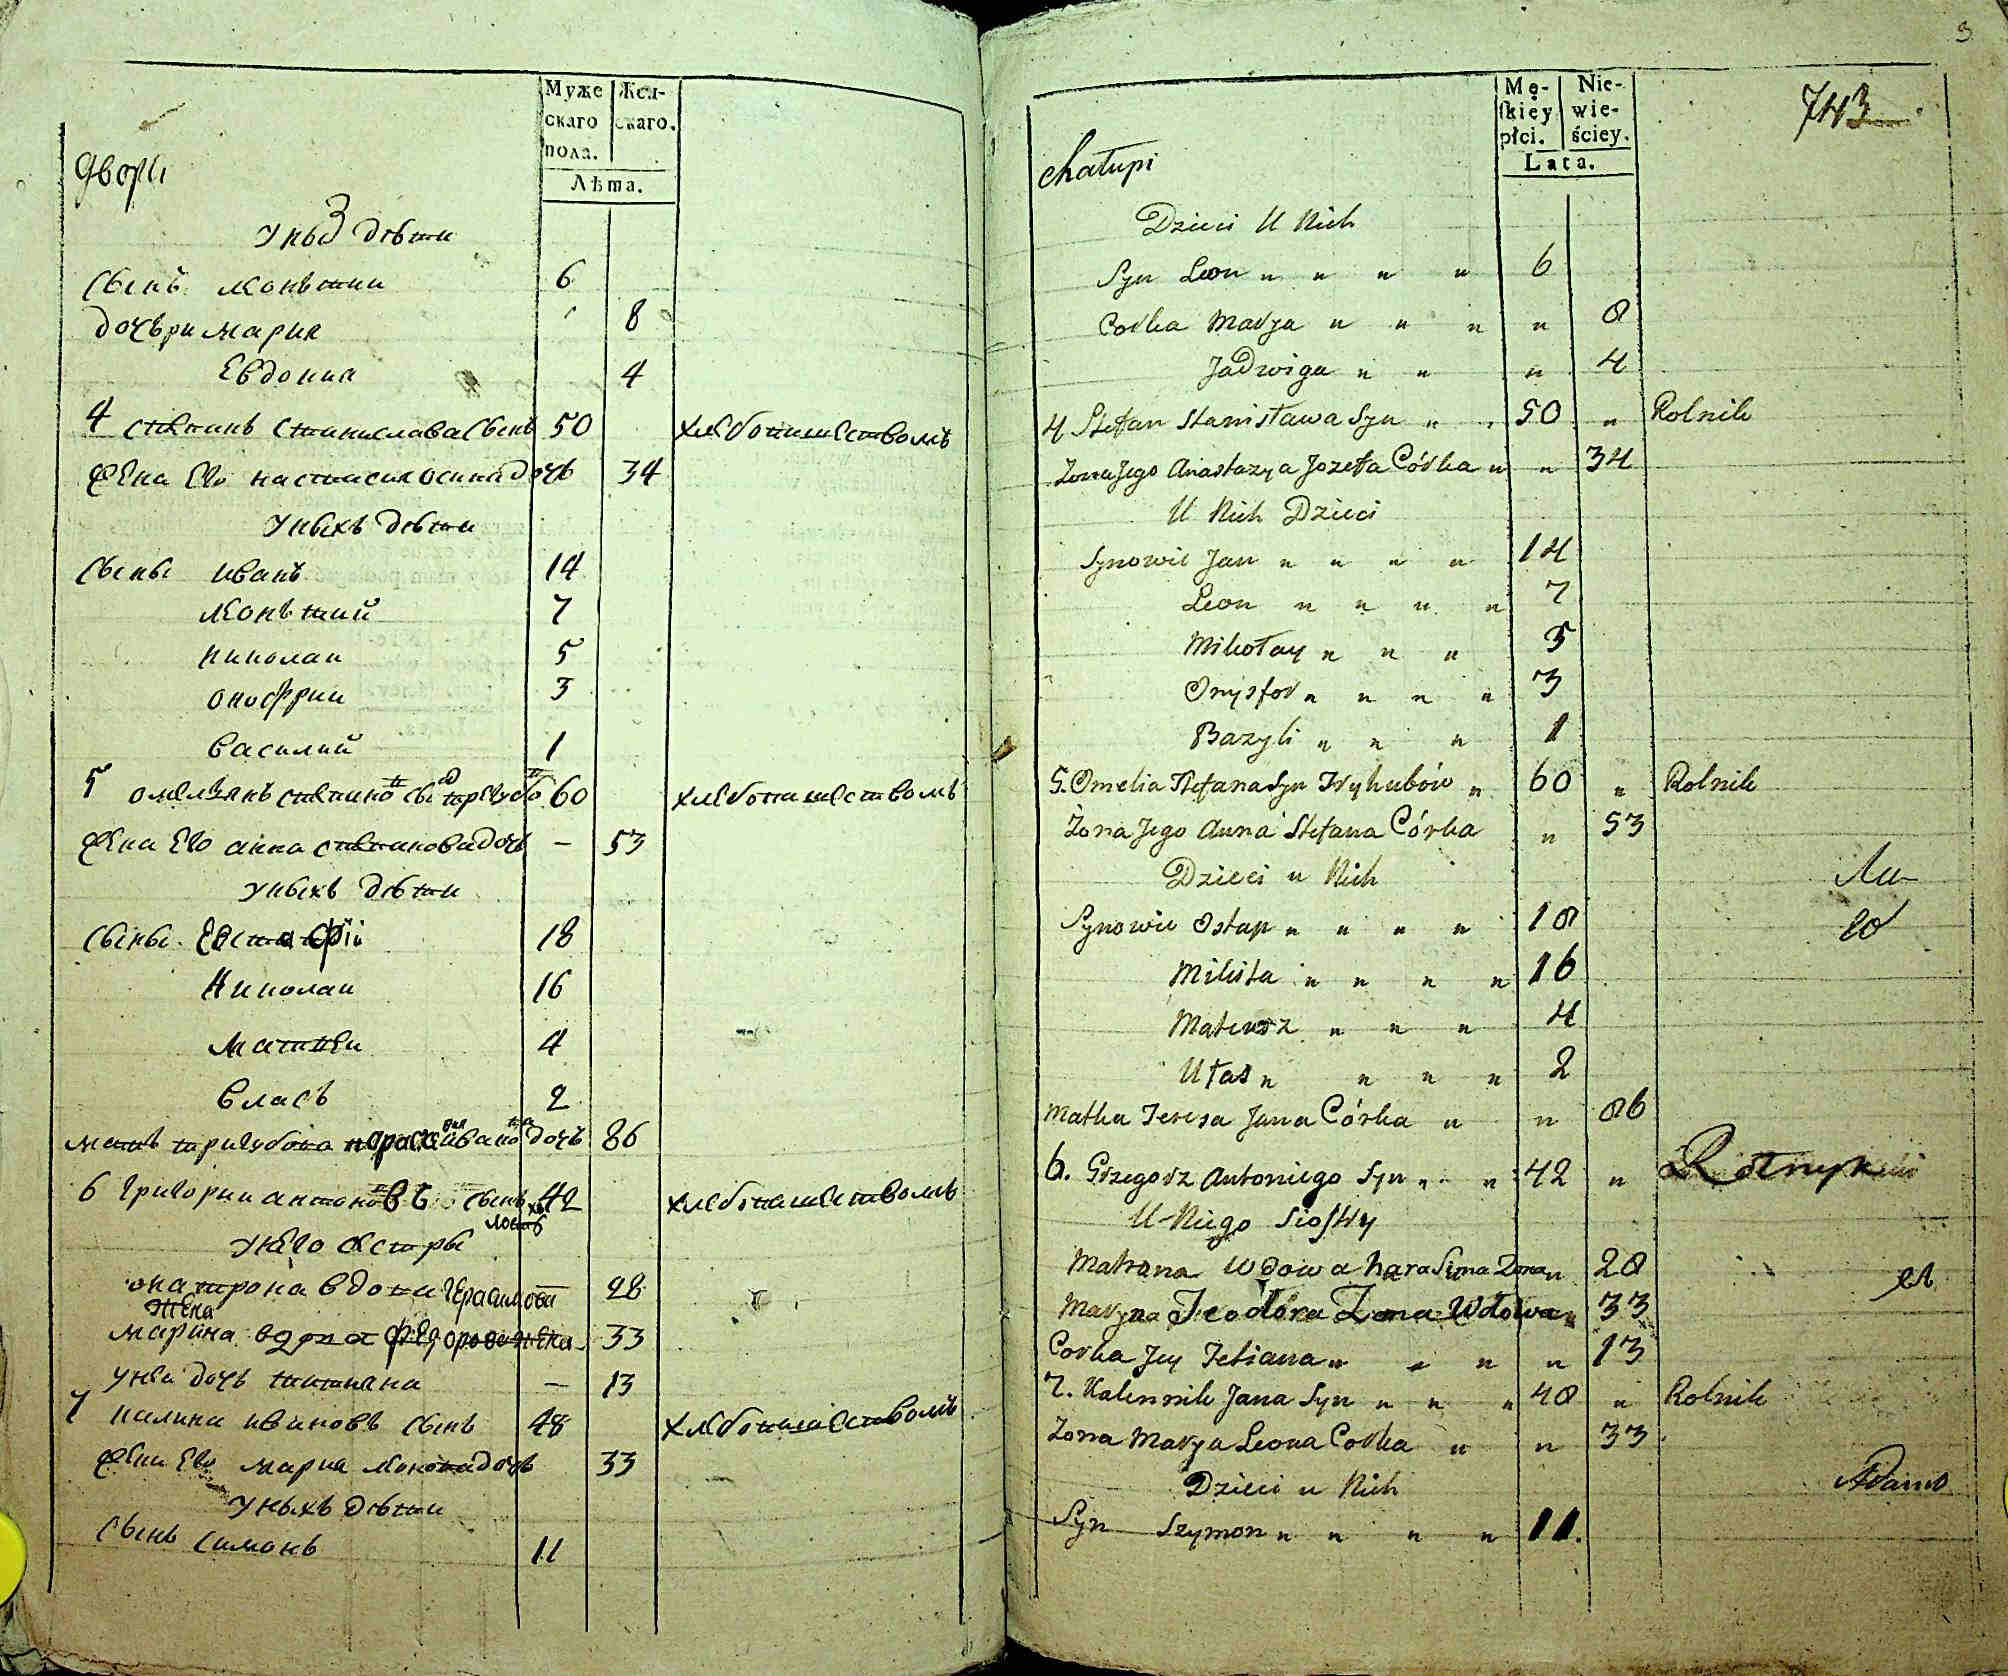 Муже
скаго
пола.
Жен-
скаго.
Лѣта.
дворы
3
У ныхъ дѣти
сынъ леонътии 6
дочъри мария 8
Евдокиа 4
4 степанъ станиславасынъ 50 хлебопашествомъ
жена Его настасия осипа дочь 34
Уныхъ дѣти
сыны иванъ 14
леонътий 7
николаи 5
онофрии 3
василий 1
5 омелянъ степано сы тригубо 60 хлебопашествомъ
жена Его анна степановадочь — 53
Уныхъ дѣти
сыны Евстафій 18
Николаи 16
матвеи 4
власъ 2
мать тригубова параска ивано дочь 86
6 григории антоновъ сынъ 42 хлебопашествомъ
У него сестры
матрона вдова герасимова 28
жена
марина вдова федорова жена 33
Унеи дочь татияна — 13
7 калина ивановъ сынъ 48 хлебопашествомъ
жена Его мария леоновадочь 33
Уныхъ дѣти
сынъ симонъ 11
3
Mę-
skiey
płci.
Nie-
wie-
ściey.
Lata.
743
chałupi
Dzieci U Nich
Syn Leon " " " " 6
Corka Marya " " " " 8
Jadwiga " " " 4
4 Stefan Stanisława Syn " " 50 " Rolnik
Zona Jego Anastazya Jozefa Córka " " 34
U Nich Dzieci
Synowie Jan " " " " 14
Leon " " " " 7
Mikołay " " " 5
Onysfor " " " " 3
Bazyli " " " 1
5. Omelia Stefana Syn Tryhubów " 60 " Rolnik
Zona Jego Anna Stefana Córka " 53
Dzieci u Nich
Synowie Ostap " " " " 18
Mikita " " " " 16
Mateusz " " " 4
Ułas " " " " 2
Matka Teresa Jana Córka " " 86
6. Grzegorz Antoniego Syn " " 42 " Rolnyk
U Niego Siostry
Matrona Wdowa harasima Zona " 28
Maryna Teodora Zona Wdowa " 33
Corka Jey Tetiana " " " " 13
7. Kalennik Jana Syn " " " 48 " Rolnik
Zona Marya Leona Corka " " 33
Dzieci u Nich
Syn Szymon " " " " 11.